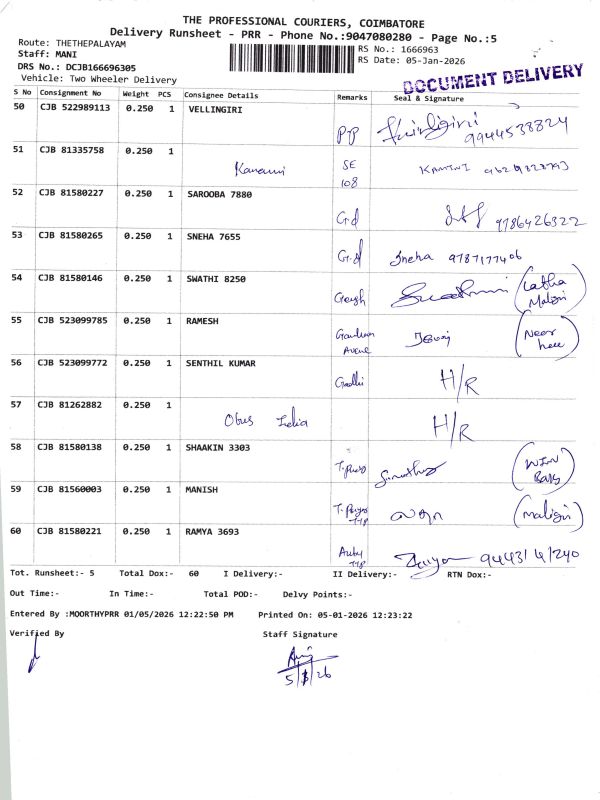 THE PROFESSIONAL COURIERS, COIMBATORE
Delivery Runsheet - PRR - Phone No.:9047080280 - Page No.:5
Route: THETHEPALAYAM
RS No.: 1666963
Staff: MANI
RS Date: 05-Jan-2026
DRS No.: DCJB166696305
Vehicle: Two Wheeler Delivery
DOCUMENT DELIVERY
S No Consignment No Weight PCS Consignee Details Remarks Seal & Signature
50 CJB 522989113 0.250 1 VELLINGIRI
9944538824
51 CJB 81335758 0.250 1
SE
108
52 CJB 81580227 0.250 1 SAROOBA 7880
G.d 9786426322
53 CJB 81580265 0.250 1 SNEHA 7655
G.d Sneha 9787177406
54 CJB 81580146 0.250 1 SWATHI 8250
(Latha
55 CJB 523099785 0.250 1 RAMESH
Avenue
(Near
here)
56 CJB 523099772 0.250 1 SENTHIL KUMAR
H/R
57 CJB 81262882 0.250 1
H/R
58 CJB 81580138 0.250 1 SHAAKIN 3303
59 CJB 81560003 0.250 1 MANISH
60 CJB 81580221 0.250 1 RAMYA 3693
9443141240
Tot. Runsheet:- 5 Total Dox:- 60 I Delivery:- II Delivery:- RTN Dox:-
Out Time:- In Time:- Total POD:- Delvy Points:-
Entered By :MOORTHYPRR 01/05/2026 12:22:50 PM Printed On: 05-01-2026 12:23:22
Verified By Staff Signature